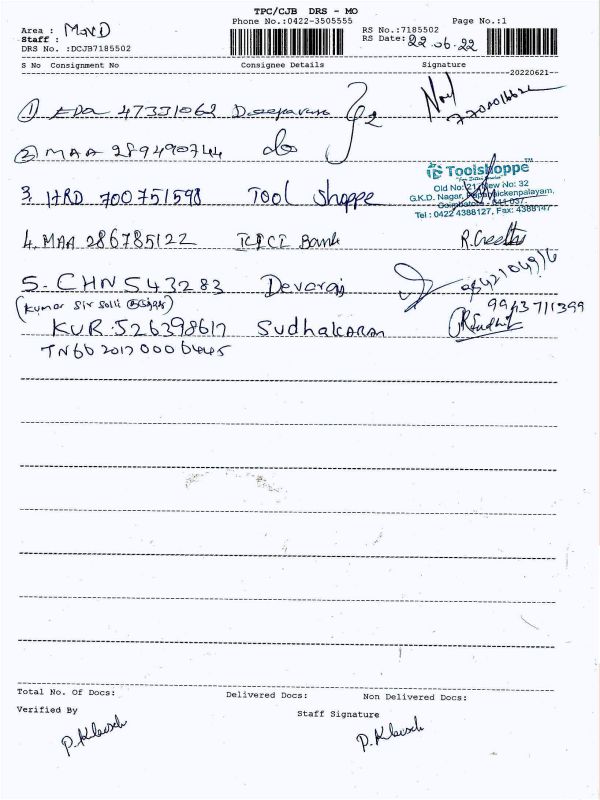 TPC/CJB DRS - MO
Phone No.:0422-3505555 Page No.:1
Area :
Staff : RS No.:7185502
DRS No. :DCJB7185502 RS Date: 22.06.22
S No Consignment No Consignee Details Signature
-20220621-
① EDA 47331062
② MAA 289490744 do
3. HRD 700751598 Tool Shoppe
Toolshoppe™
Old No: New No: 32
G.K.D. Nagar, Pappanaickenpalayam,
Coimbatore - 641 037.
Tel : 0422 4388127, Fax: 4388147
4. MAA 286785122 ICICI Bank R.Geetha
5. CHN 543283 Devaraj
(Kumar Sir
9943711399
KUR. 526398617 Sudhakaran
TN66 2017 000 6445
Total No. Of Docs: Delivered Docs: Non Delivered Docs:
Verified By Staff Signature